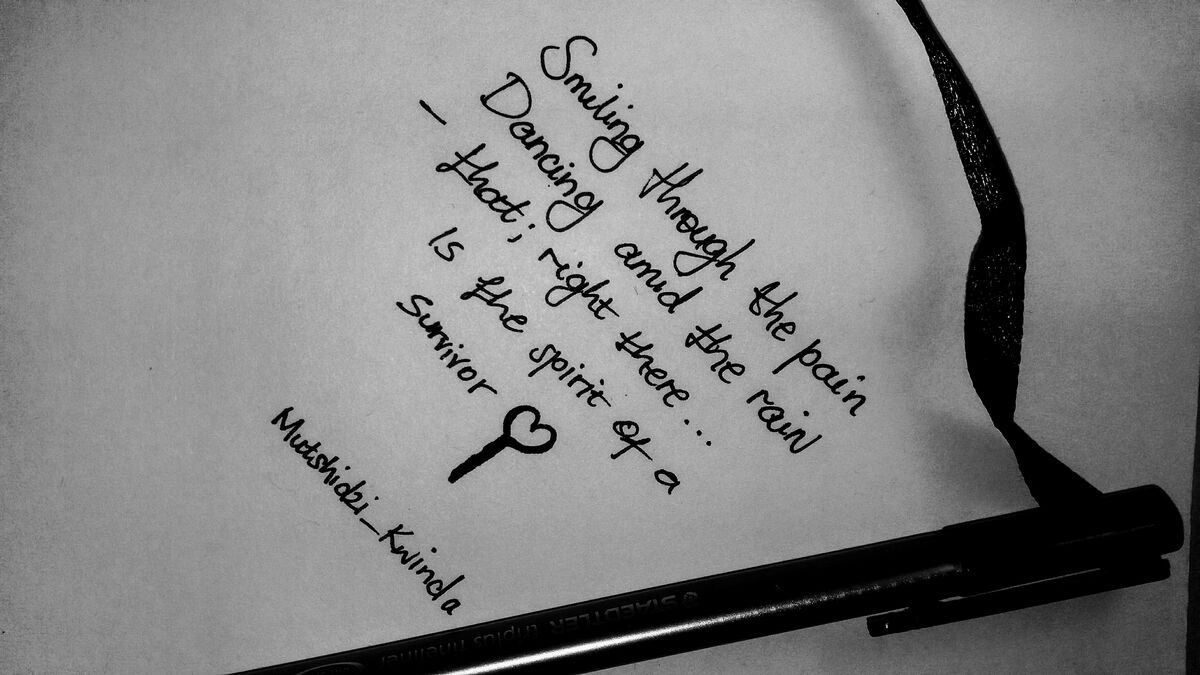 Smiling through the pain
Dancing amid the rain
- that; right there...
Is the spirit of a
survivor
Mutshidzi_Kwinda
STAEDTLER triplus fineliner